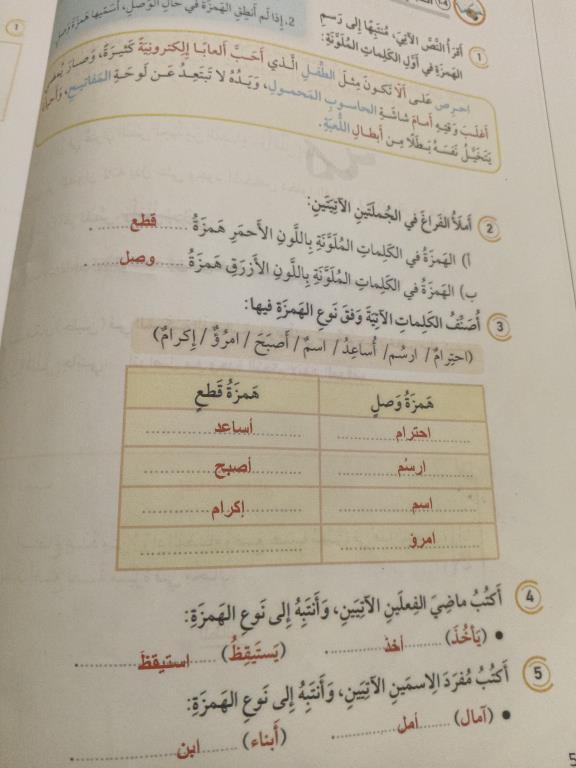 2. إذا لم أنطق الهمزة في حال الوصل، أسميها همزة وصل
1 أقرأ النص الآتي، منتبها إلى رسم
الهمزة في أول الكلمات الملونة:
احرص على ألا تكون مثل الطفل الذي أحب ألعابا إلكترونية كثيرة، وصار
أغلب وقته أمام شاشة الحاسوب المحمول، ويده لا تبتعد عن لوحة المفاتيح،
يتخيل نفسه بطلا من أبطال اللعبة.
2 أملأ الفراغ في الجملتين الآتيتين:
أ) الهمزة في الكلمات الملونة باللون الأحمر همزة قطع .
ب) الهمزة في الكلمات الملونة باللون الأزرق همزة وصل .
3 أصنف الكلمات الآتية وفق نوع الهمزة فيها:
(احترام / ارسم / أساعد / اسم / أصبح / امرؤ / إكرام)
همزة وصل همزة قطع
احترام أساعد
ارسم أصبح
اسم إكرام
امرؤ
4 أكتب ماضي الفعلين الآتيين، وأنتبه إلى نوع الهمزة:
• (يأخذ) أخذ . (يستيقظ) استيقظ .
5 أكتب مفرد الاسمين الآتيين، وأنتبه إلى نوع الهمزة:
• (آمال) أمل . (أبناء) ابن .
1
5